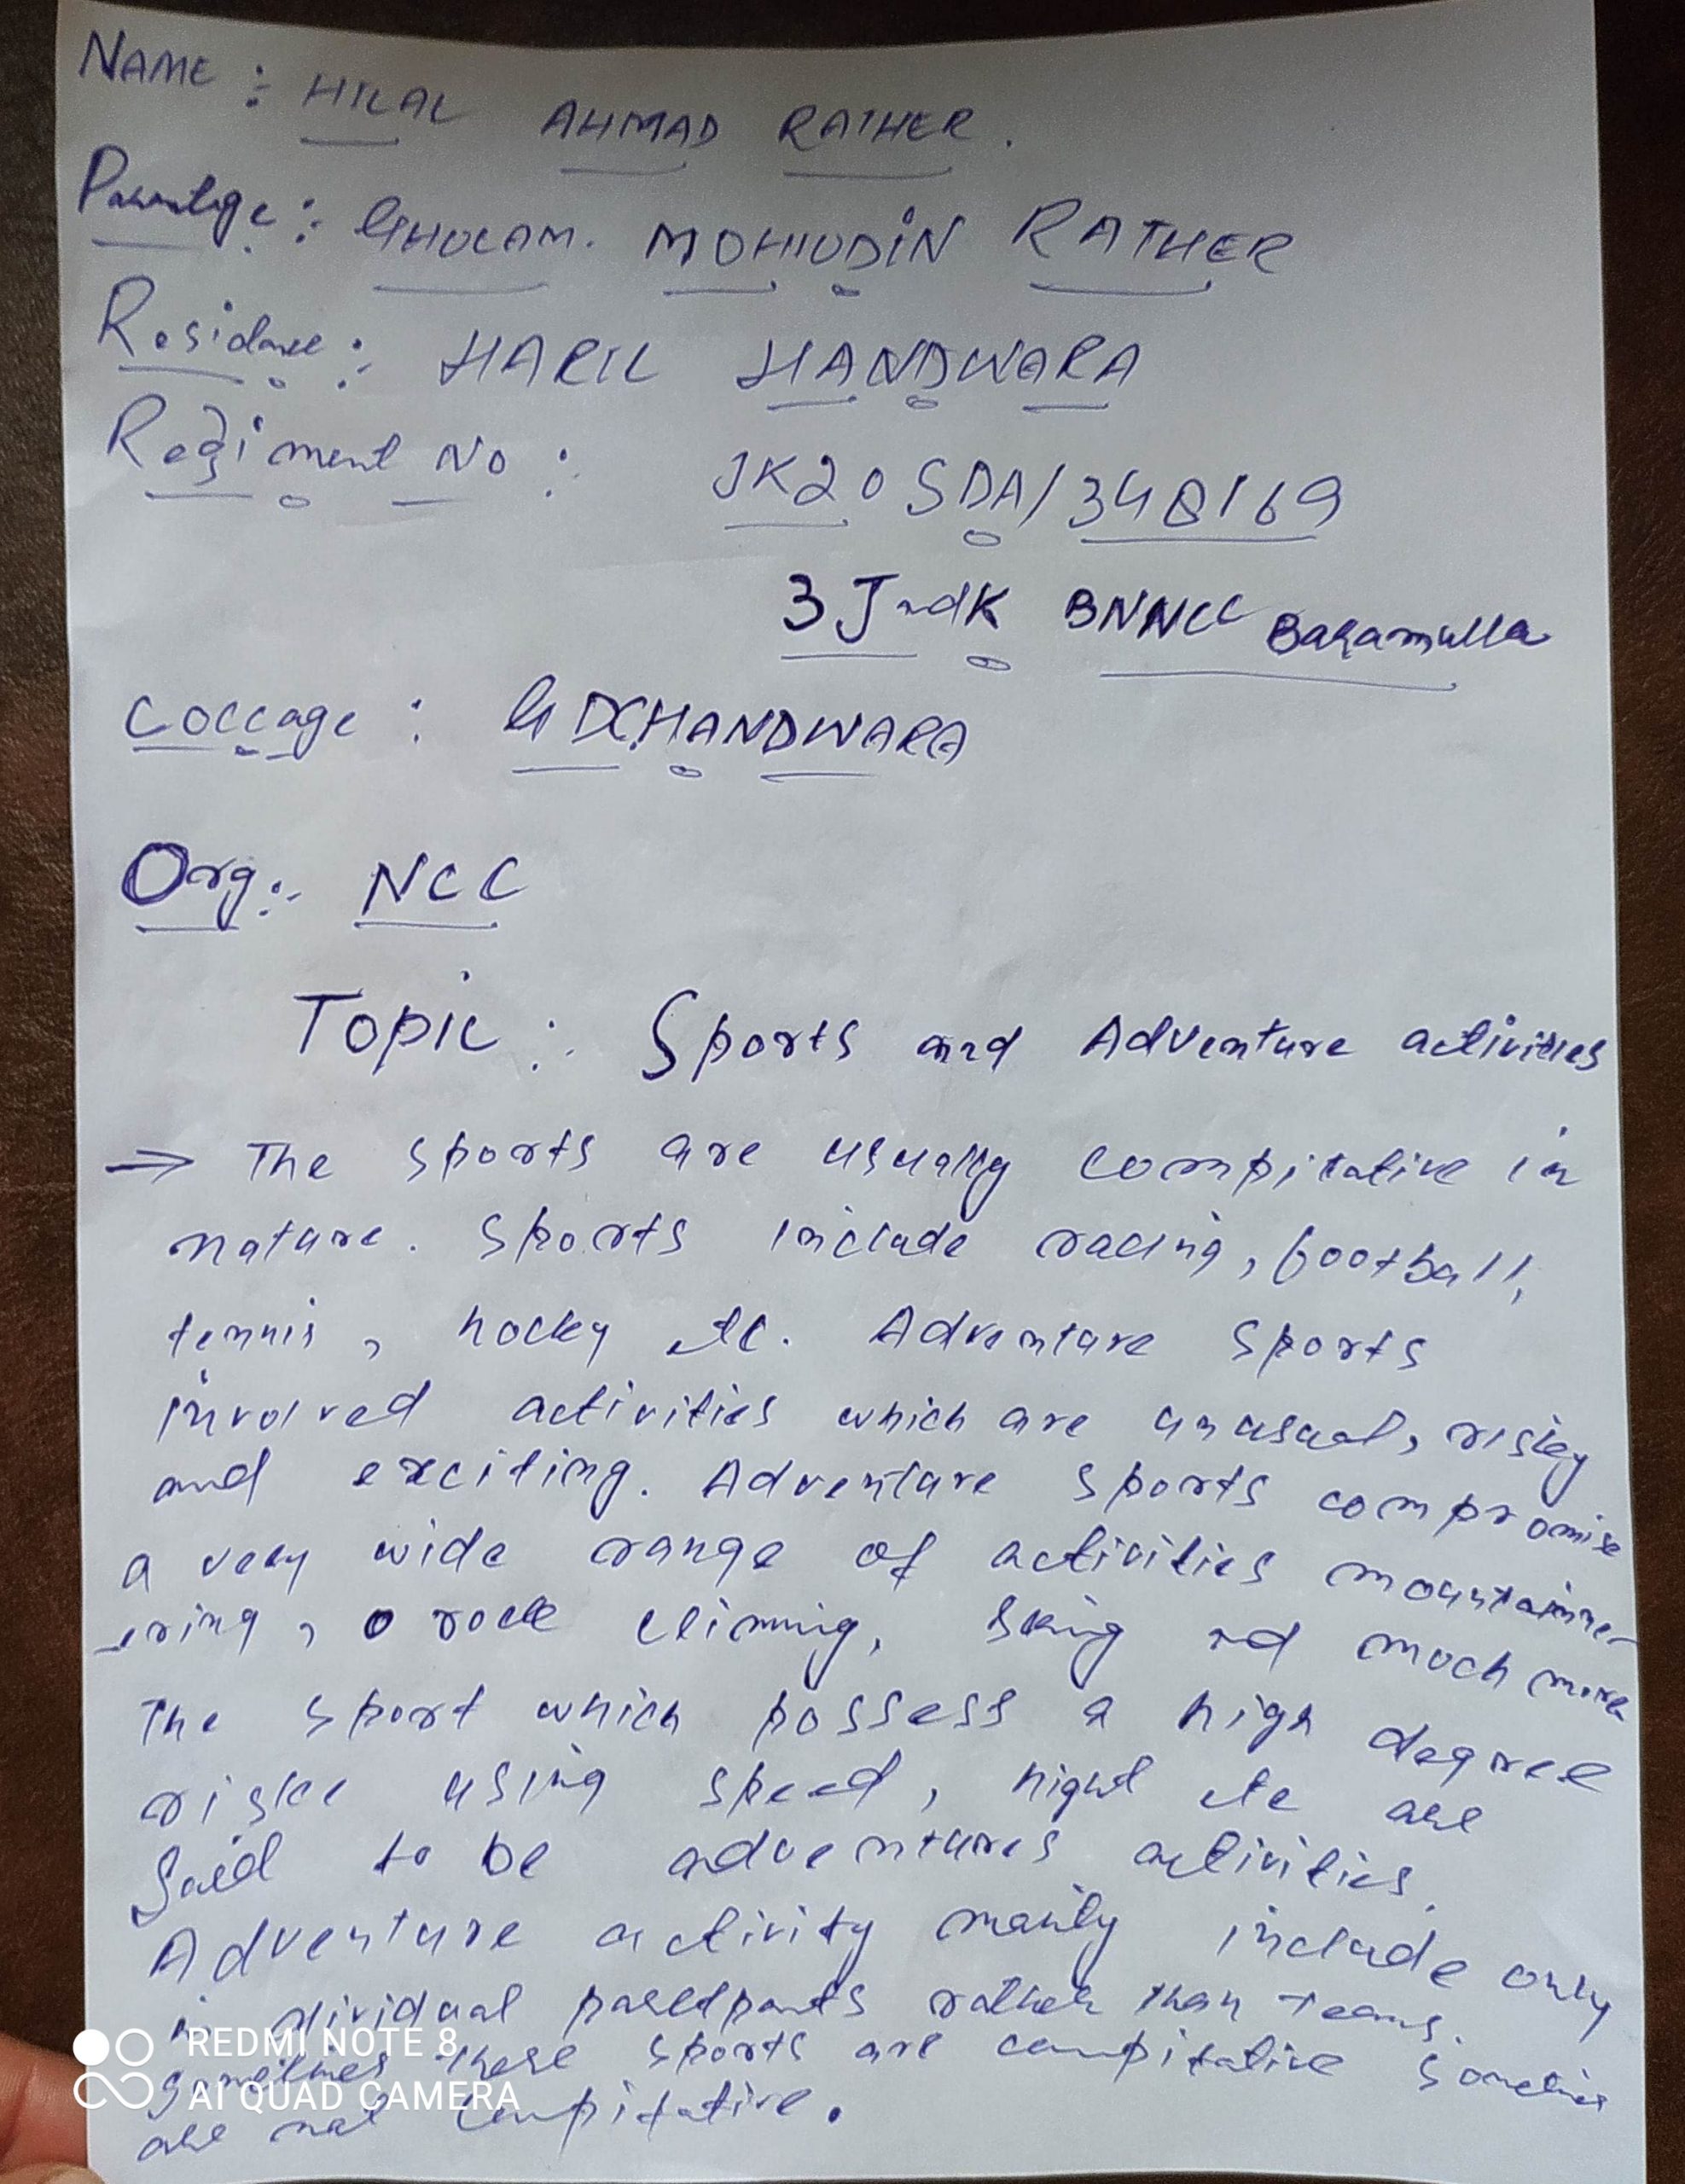 NAME :- HILAL AHMAD RATHER.
Parentage :- GHULAM. MOHIUDIN RATHER
Residance :- HARIL HANDWARA
Regiment No :- JK20SDA/348169
3 JndK BNNCC Baramulla
COLLage : GDCHANDWARA
Org :- NCC
Topic :- Sports and Adventure activities
⇒ The sports are usually compitative in
nature. Sports include racing, football,
tennis, hocky etc. Adventure sports
involved activities which are unusual, risky
and exciting. Adventure sports compromise
a very wide range of activities mountaine-
-ering, rock climing, skiing nd much more
The sport which possess a high degree
riske using speed, hight etc are
Said to be adventures activities.
Adventure activity mainly include only
individual rather than teams.
Sometimes these sports are compitative Sometimes
are not compitative.
REDMI NOTE 8
AI QUAD CAMERA